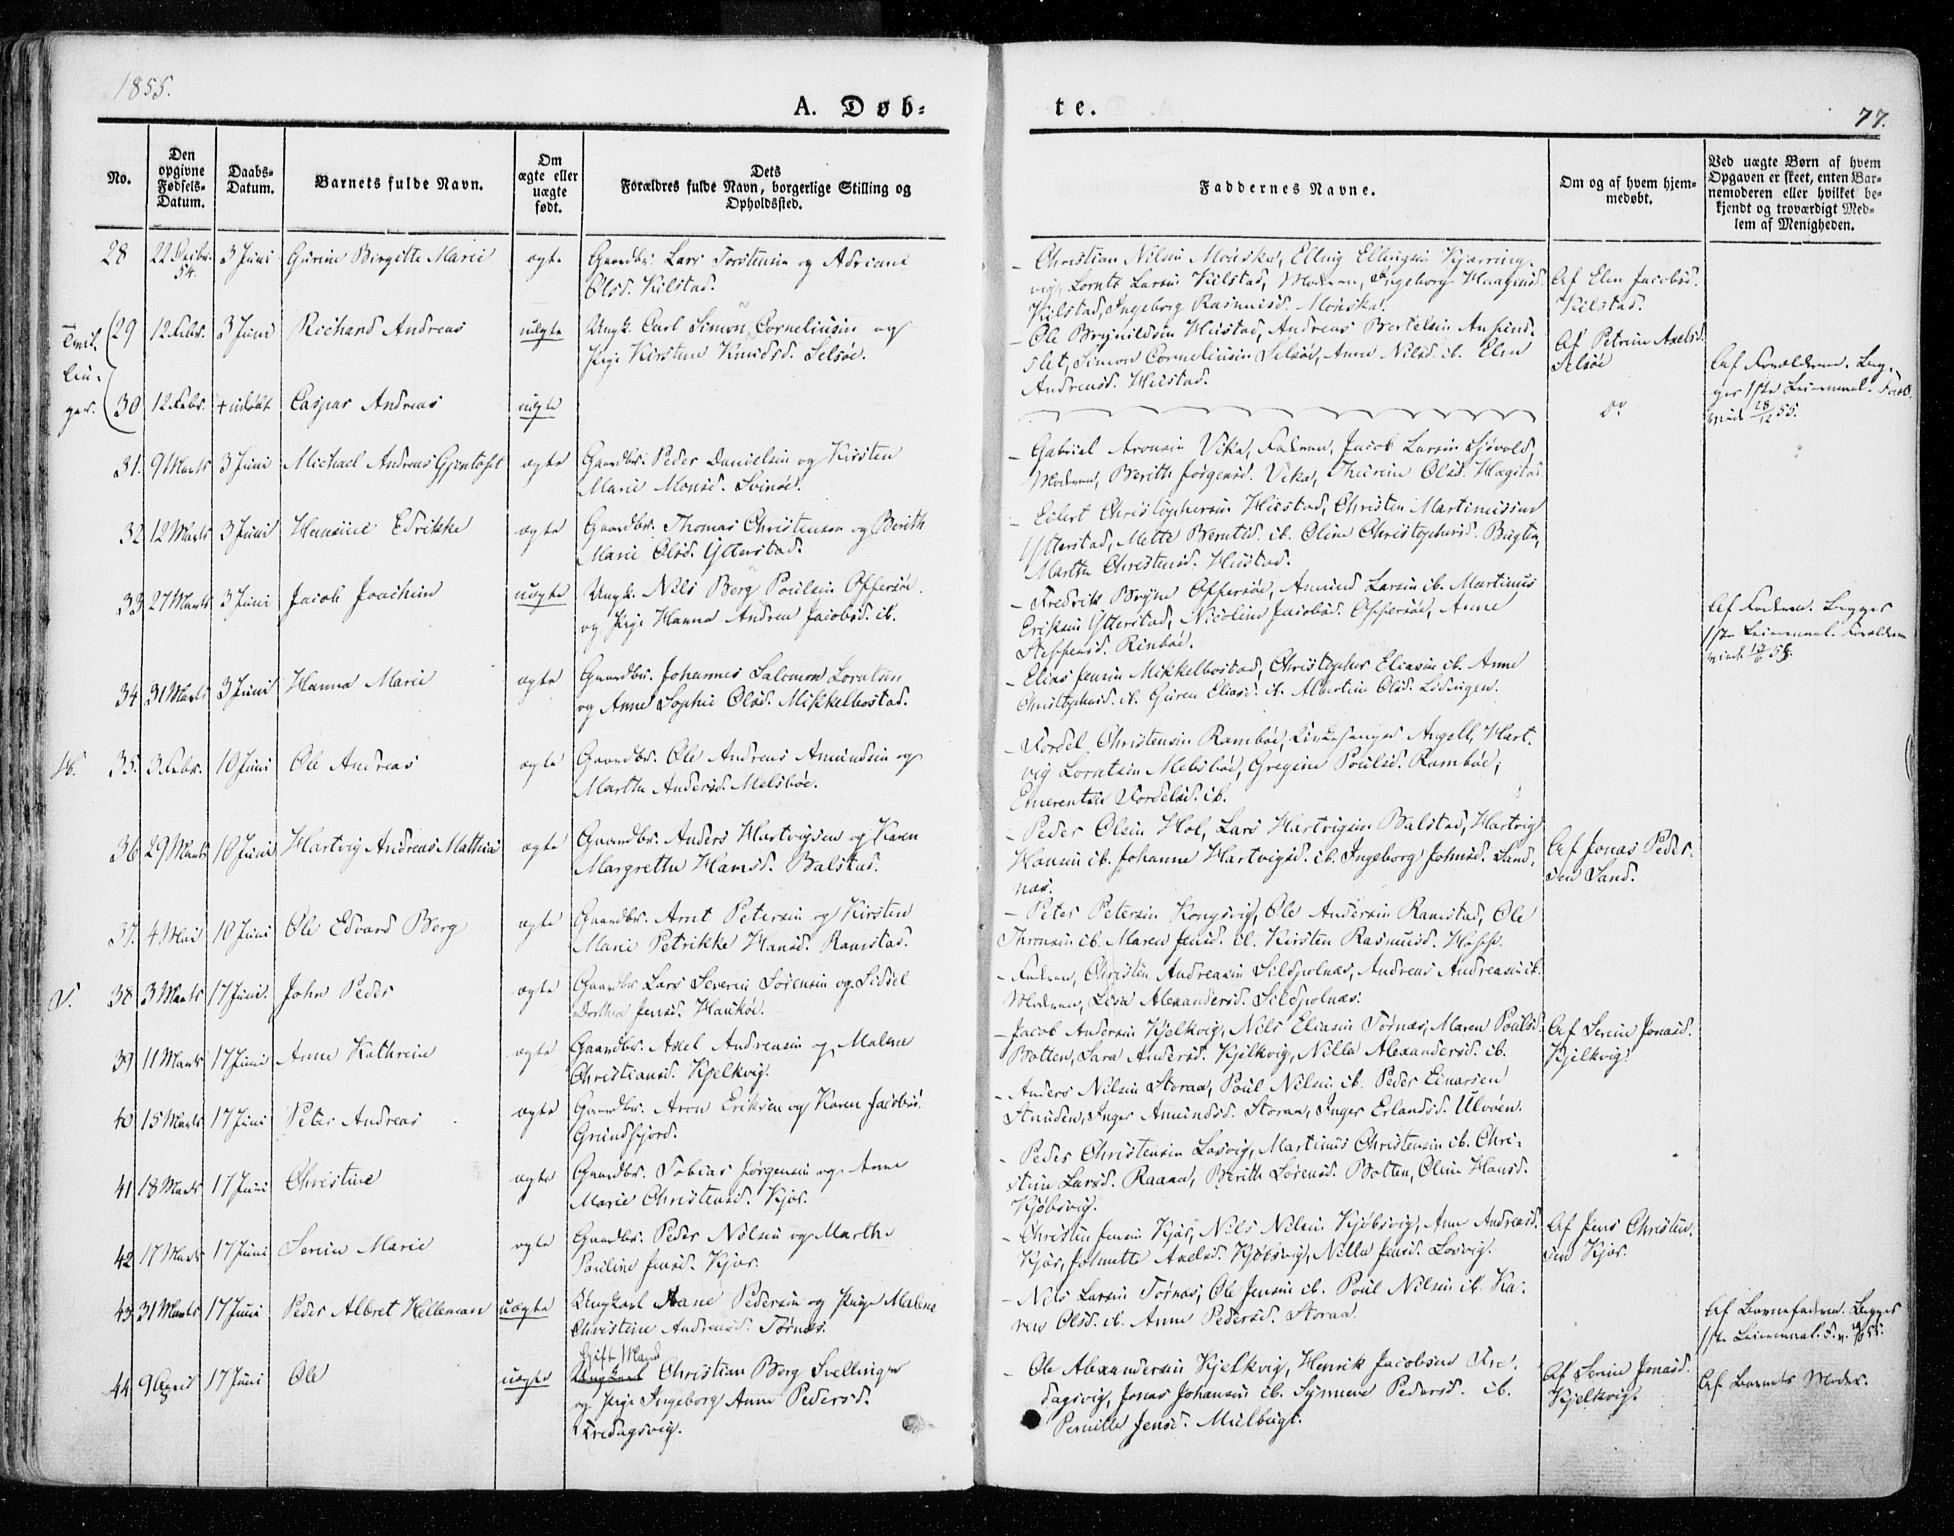 1855.
A. Døb-
te.
77.
No.
Den opgivne Fødsels-Datum.
Daabs-Datum.
Barnets fulde Navn.
Om ægte eller uægte født.
Dets Forældres fulde Navn, borgerlige Stilling og Opholdssted.
Faddernes Navne.
Om og af hvem hjem-medøbt.
Ved uægte Børn af hvem Opgaven er skeet, enten Bar-nemoderen eller hvilket be-kjendt og troværdigt Med-lem af Menigheden.
28 22 54. 3 Juni Birgitte Marie ægte Gaardbr. Lars Torstensen og Adriane
Olsd. Kilstad.
Christian Nilsen Elling Ellingsen Kjærring-
vig, Lorents Larsen Kilstad, Moderen, Ingeborg
Kilstad, Ingeborg Rasmusd.
Af Elen Jacobsd.
Kilstad.
29 12 Febr. 3 Juni Richard Andreas uægte Ungk. Carl Simon Corneliusen og
Pige Kirsten Knudsd. Selsøe.
Ole Brynildsen Hustad, Andreas Bertelsen
Simon Corneliusen Selsøe, Anne Nilsd. ib. Elen
Andreasd. Hustad.
Af Petrine Axelsd.
Selsøe
Af Forældrene. Beg-
ges 1ste Leiermaal. Foræld.
viede 28/12 55.
30 12 Febr. Caspar Andreas uægte
Do
31. 9 Marts 3 Juni Michael Andreas ægte Gaardbr. Peder Danielsen og Kirsten
Marie Monsd. Svinøe.
Gabriel Aronsen Vika, Faderen, Jacob Larsen
Moderen, Berith Jörgensd. Vika, Olsd.
32 12 Marts 3 Juni Hansine Edrikke ægte Gaardbr. Thomas Christensen og Berith
Marie Olsd. Ytterstad.
Edert Christophersen Hustad, Christen Martinusen
Ytterstad, Mette Berntsd. ib. Oline Christophersd.
Martha Christensd. Hustad.
33 27 Marts 3 Juni Jacob Joachim uægte Ungk. Nils Berg Poulsen Offersøe
og Pige Hanna Andrea Jacobsd. ib.
Fredrik Bryn Offersøe, Amund Larsen ib. Martinus
Eriksen Ytterstad, Nicoline Jacobsd. Offersøe, Anne
Steffensd. Rinbøe.
Af Faderen. Begges
1ste Leiermaal. Forældrene
34 31 Marts 3 Juni Hanna Marie ægte Gaardbr. Johannes Salomon Lorntsen
og Anne Sophie Olsd. Mikkelbostad.
Elias Jensen Mikkelbostad, Christopher Eliasen ib. Anne
Christophersd. ib. Guren Eliasd. ib. Albertine Olsd. Lødingen.
35. 3 Febr. 10 Juni Ole Andreas ægte Gaardbr. Ole Andreas Amundsen og
Martha Andersd. Melsbøe.
Fordel Christensen Rambøe, Angell, Hart-
vig Lorntsen Melsbøe, Gregine Poulsd. Rambøe,
Emerentse Fordelsd. ib.
36 29 Marts 10 Juni Hartvig Andreas Mathias ægte Gaardbr. Anders Hartvigsen og Karen
Margrethe Hansd. Balstad.
Peder Olsen Hol, Lars Hartvigsen Balstad, Hartvig
Hansen ib. Johanne Hartvigsd. ib. Ingeborg Johnsd. Sand-
næs.
Af Jonas Peder-
sen Sand.
37. 4 Mai 10 Juni Ole Edvard Berg ægte Gaardbr. Arnt Petersen og Kirsten
Marie Petrikke Hansd. Ramstad.
Peter Petersen Kongsvig, Ole Andersen Ramstad, Ole
Thronsen ib. Maren Jensd. ib. Kirsten Rasmusd.
38 3 Marts 17 Juni. John Peder ægte Gaardbr Lars Severin Sörensen og Sidsel
Dorthea Jensd. Haukøe.
Faderen, Christen Andreasen Sildpolnæs, Andreas Andreasen ib.
Moderen, Lisa Alexandersd. Sildpolnæs.
39 11 Marts 17 Juni Anne Kathrine ægte Gaardbr. Axel Andreasen og Malene
Christiansd. Kjelkvig.
Jacob Andersen Kjelkvig, Nils Eliasen Tørnæs, Maren Poulsd.
Botten, Sara Andersd. Kjelkvig, Nilla Alexandersd. ib.
Af Serine Jonasd.
Kjelkvig.
40 15 Marts 17 Juni Peter Andreas ægte Gaardbr. Aron Eriksen og Karen Jacobsd.
Grundfjord.
Anders Nilsen Storaa, Poul Nilsen ib. Peder Einarsen
Inger Amundsd. Storaa, Inger Erlandsd. Ulvøen.
41 18 Marts 17 Juni Christine ægte Gaardbr. Tobias Jörgensen og Anne
Marie Christensd. Kjør.
Peder Christensen Losvig, Martinus Christensen ib. Chri-
stine Larsd. Raana, Berith Sörensd. Botten, Oline Hansd.
Kjøbsvig.
42 17 Marts 17 Juni Serine Marie ægte Gaardbr. Peder Nilsen og Marthe
Pauline Jensd. Kjør.
Christen Jensen Kjør, Nils Nilsen Kjøbsvig, Ane Andreasd.
Kjør, Johnette Axelsd. Kjøbsvig, Nilla Jensd. Losvig.
Af Jens Christen-
sen Kjør.
43 31 Marts 17 Juni Peder Albret Kelleman uægte Ungkarl Aane Pedersen og Pige Malene
Christine Andreasd. Tørnæs.
Nils Larsen Tørnæs, Ole Jensen ib. Poul Nilsen ib. Ka-
ren Olsd. ib. Anne Pedersd. Storaa.
Af Barnefaderen. Begges
1ste Leiermaal.
44 9 April 17 Juni Ole uægte Gift Mand
Ungkarl Christian Berg Svellinger
og Pige Ingeborg Anne Pedersd.
Fredagsvig.
Ole Alexandersen Kjelkvig, Henrik Jacobsen Fre-
dagsvig, Jonas Johansen ib. Synneve Pedersd. ib.
Pernille Jensd. Mulbugt.
Af Serine Jonasd.
Kjelkvig.
Af Barnets Moder.